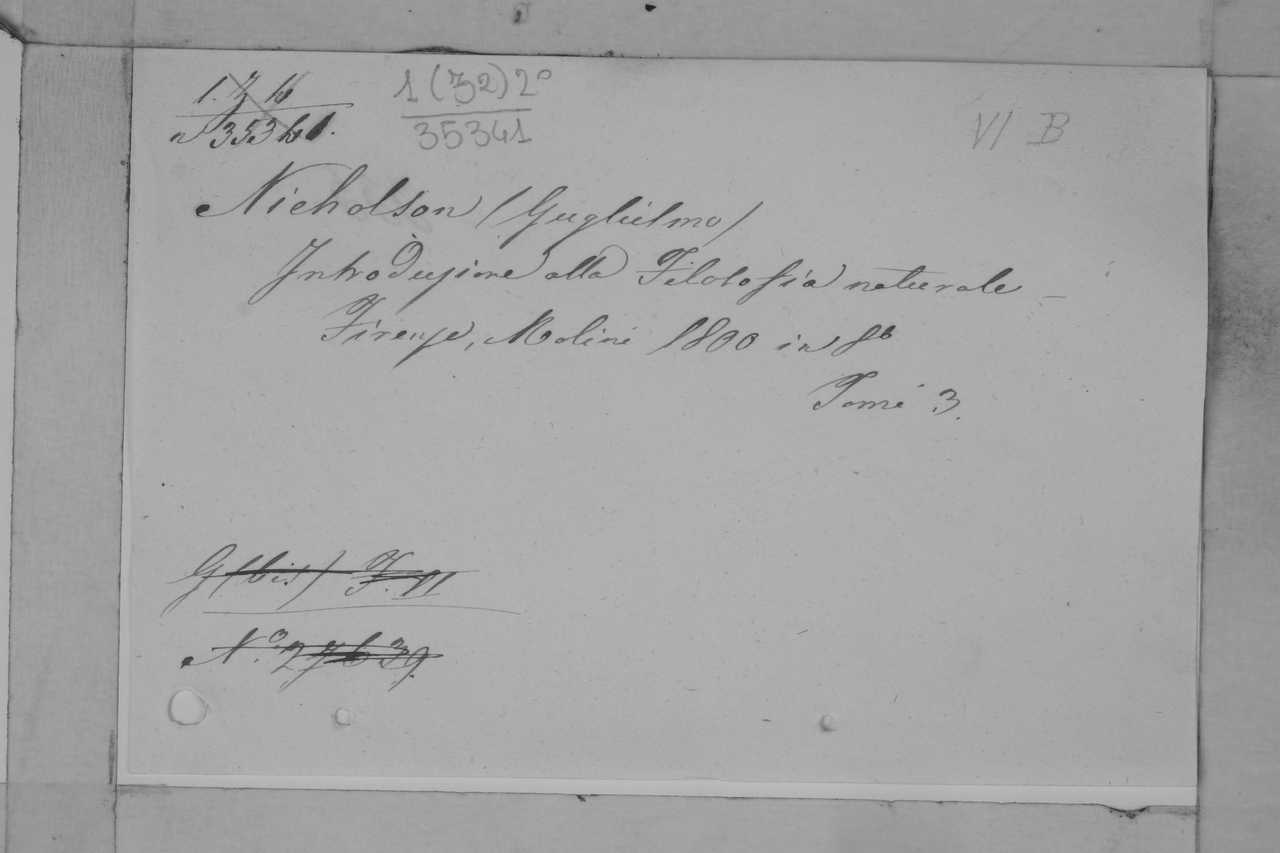 1 (32) 2°
35341
VI B
Nicholson (Guglielmo)
Introduzione alla Filosofia naturale
Firenze, Molini 1800 in 8°
Tomi 3.
G (bis) F. VI
N.°